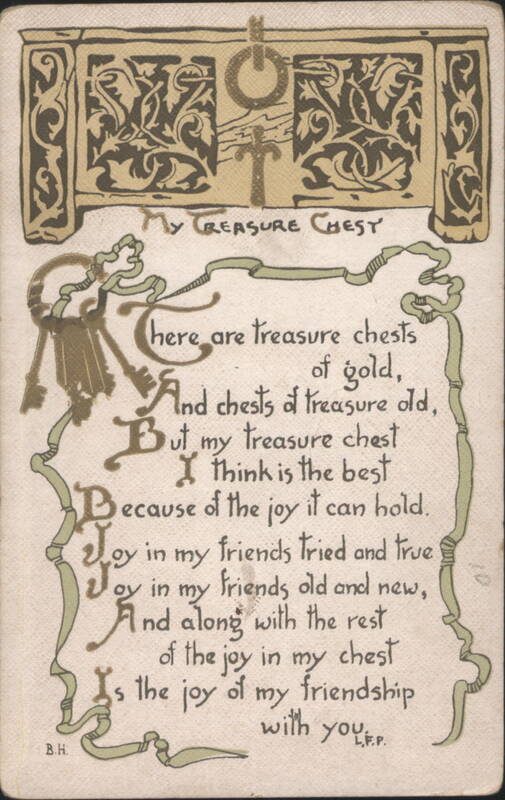 My Treasure Chest
There are treasure chests
of gold,
And chests of treasure old,
But my treasure chest
I think is the best
Because of the joy it can hold.
Joy in my friends tried and true
Joy in my friends old and new,
And along with the rest
of the joy in my chest
Is the joy of my friendship
with you.
L.F.P.
B.H.